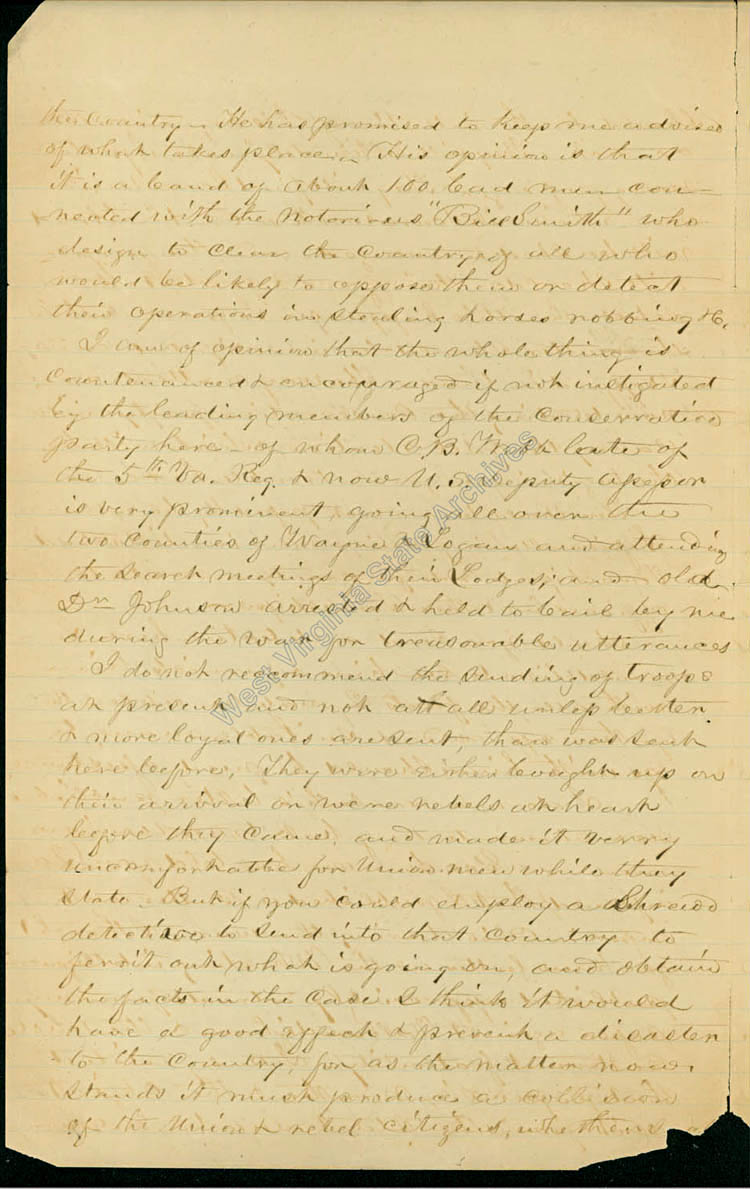 the Country. He has promised to keep me advised
of what takes place. His opinion is that
it is a band of about 100 bad men con-
nected with the notorious "Bill Smith" who
design to clear the Country of all who
would be likely to oppose them or detect
their operations in stealing horses robbing &c.
I am of opinion that the whole thing is
Countenanced & encouraged if not instigated
by the leading members of the Conservative
party here - of whom C.B. late of
the 5th Va. Reg. & now U.S. deputy Assessor
is very prominent, going all over the
two Counties of Wayne & Logan and attending
the meetings of their Lodges; and old
Dr Johnson arrested & held to bail by me
during the war for treasonable utterances
I do not reccommend the sending of troops
at present and not at all unless better
& more loyal ones are sent, than was sent
here before. They were either bought up on
their arrival or were rebels at heart
before they came, and made it verry
uncomfortable for Union men while they
staid. But if you could employ a Shrewd
detective to send into that Country to
ferrit out what is going on, and obtain
the facts in the Case I think it would
have a good effect & prevent a disaster
to the Country, for as the matter now
stands it must produce a collision
of the Union & rebel citizens,
West Virginia State Archives